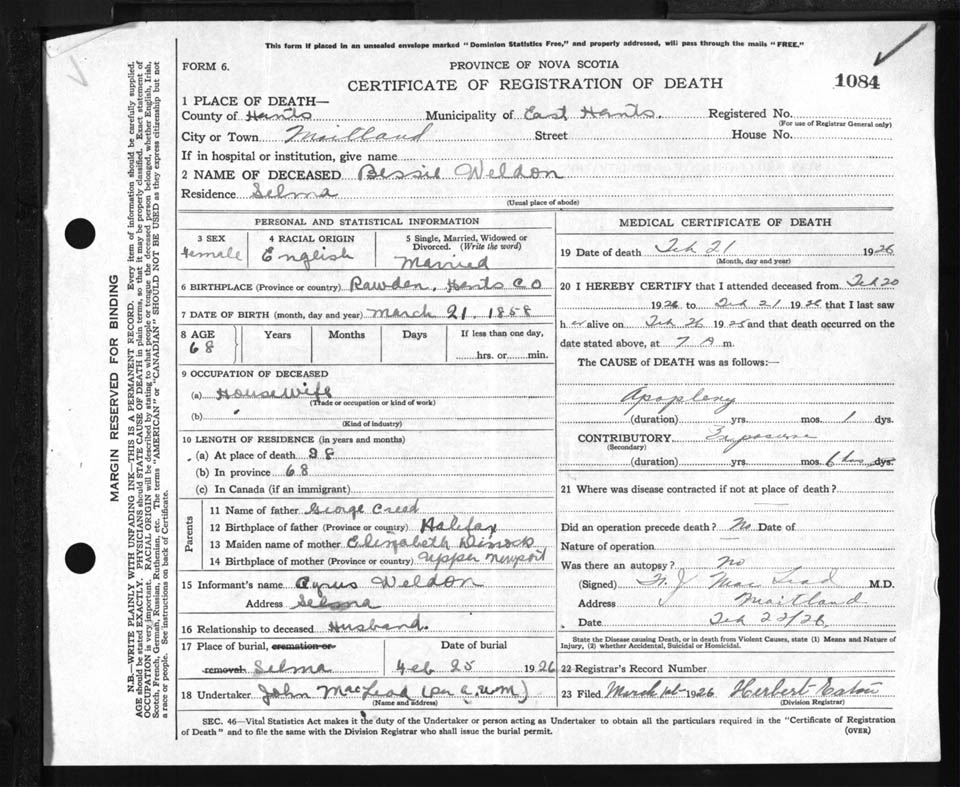 This form if placed in an unsealed envelope marked "Dominion Statistics Free," and properly addressed, will pass through the mails "FREE."
FORM 6.
PROVINCE OF NOVA SCOTIA
CERTIFICATE OF REGISTRATION OF DEATH
1084
1 PLACE OF DEATH—
County of Hants Municipality of East Hants. Registered No.
(For use of Registrar General only)
City or Town Maitland Street House No.
If in hospital or institution, give name
2 NAME OF DECEASED Bessie Weldon
Residence Selma
(Usual place of abode)
PERSONAL AND STATISTICAL INFORMATION
3 SEX
Female
4 RACIAL ORIGIN
English
5 Single, Married, Widowed or Divorced. (Write the word)
Married
6 BIRTHPLACE (Province or country) Rawdon, Hants CO
7 DATE OF BIRTH (month, day and year) March 21, 1858
8 AGE
68
Years Months Days If less than one day,
hrs. or min.
9 OCCUPATION OF DECEASED
(a) House Wife
(Trade or occupation or kind of work)
(b)
(Kind of industry)
10 LENGTH OF RESIDENCE (in years and months)
(a) At place of death 38
(b) In province 68
(c) In Canada (if an immigrant)
Parents
11 Name of father George Creed
12 Birthplace of father (Province or country) Halifax
13 Maiden name of mother Elizabeth
14 Birthplace of mother (Province or country) Upper Newport
15 Informant's name Cyrus Weldon
Address Selma
16 Relationship to deceased Husband.
17 Place of burial, cremation or
removal Selma
Date of burial
Feb 25 1926
18 Undertaker John MacLead (per
(Name and address)
MEDICAL CERTIFICATE OF DEATH
19 Date of death Feb 21 1926
(Month, day and year)
20 I HEREBY CERTIFY that I attended deceased from Feb 20
1926 to Feb 21 1926 that I last saw
her alive on Feb 1925 and that death occurred on the
date stated above, at 7 A m.
The CAUSE of DEATH was as follows:—
Apoplexy
(duration) yrs. mos. 1 dys.
CONTRIBUTORY Exposure
(Secondary)
(duration) yrs. mos. 6 hrs dys.
21 Where was disease contracted if not at place of death?
Did an operation precede death? No Date of
Nature of operation
Was there an autopsy? no
(Signed) N. J. MacLead M.D.
Address Maitland
Date Feb 22/26
State the Disease causing Death, or in death from Violent Causes, state (1) Means and Nature of
Injury, (2) whether Accidental, Suicidal or Homicidal.
22 Registrar's Record Number
23 Filed March 1st 1926 Herbert Eaton
(Division Registrar)
SEC. 46—Vital Statistics Act makes it the duty of the Undertaker or person acting as Undertaker to obtain all the particulars required in the "Certificate of Registration
of Death" and to file the same with the Division Registrar who shall issue the burial permit.
(OVER)
MARGIN RESERVED FOR BINDING
N.B.—WRITE PLAINLY WITH UNFADING INK—THIS IS A PERMANENT RECORD. Every item of information should be carefully supplied.
AGE should be stated EXACTLY. PHYSICIANS should STATE CAUSE OF DEATH in plain terms, so that it may be properly classified. Exact statement of
OCCUPATION is very important. RACIAL ORIGIN will be described by stating to what people or tongue the deceased person belonged, whether English, Irish,
Scotch, French, German, Russian, Ruthenian, etc. The terms "AMERICAN" or "CANADIAN" SHOULD NOT BE USED as they express citizenship but not
a race or people. See instructions on back of Certificate.